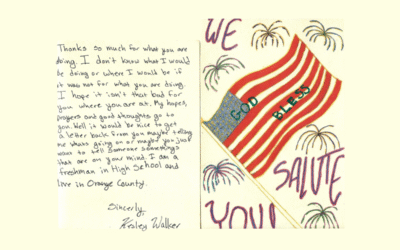 Thanks so much for what you are
doing. I don't know what I would
be doing or where I would be if
it was not for what you are doing.
I hope it isn't that bad for
you where you are at. My hopes,
prayers and good thoughts go to
you. Well it would be nice to get
a letter back from you maybe telling
me whats going on or maybe you just
want to tell someone somethings
that are on your mind. I am a
freshman in High School and
live in Orange County.
Sincerly,
Walker
WE
GOD
BLESS
SALUTE
YOU!